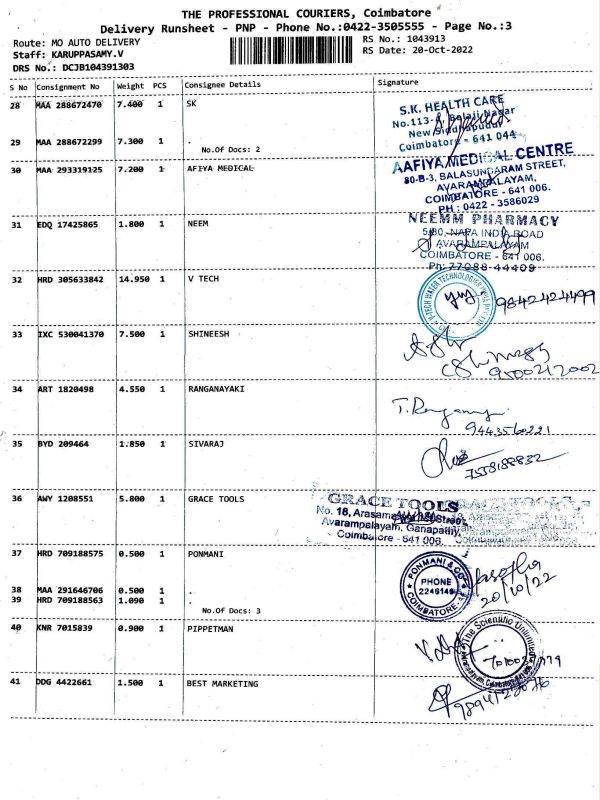 THE PROFESSIONAL COURIERS, Coimbatore
Delivery Runsheet - PNP - Phone No.:0422-3505555 - Page No.:3
Route: MO AUTO DELIVERY
RS No.: 1043913
Staff: KARUPPASAMY.V
RS Date: 20-Oct-2022
DRS No.: DCJB104391303
S No Consignment No Weight PCS Consignee Details Signature
28 MAA 288672470 7.400 1 SK
S.K. HEALTH CARE
No.113- Balaji Nagar
New Siddhapudur
Coimbatore - 641 044
29 MAA 288672299 7.300 1 .
No.Of Docs: 2
30 MAA 293319125 7.200 1 AFIYA MEDICAL
AAFIYA MEDICAL CENTRE
80-B-3, BALASUNDARAM STREET,
AVARAMPALAYAM,
COIMBATORE - 641 006.
PH : 0422 - 3586029
31 EDQ 17425865 1.800 1 NEEM
NEEMM PHARMACY
5/80, NAPA INDIA ROAD
AVARAMPALAYAM
COIMBATORE - 641 006.
Ph: 77088-44409
32 HRD 305633842 14.950 1 V TECH
9842424499
33 IXC 530041370 7.500 1 SHINEESH
9500217002
34 ART 1820498 4.550 1 RANGANAYAKI
9443560221
35 BYD 209464 1.850 1 SIVARAJ
7558188832
36 AWY 1208551 5.800 1 GRACE TOOLS
GRACE TOOLS
No. 18, Street,
Avarampalayam, Ganapathy,
Coimbatore - 641 006.
37 HRD 709188575 0.500 1 PONMANI
PONMANI & CO
PHONE
COIMBATORE
20/10/22
38 MAA 291646706 0.500 1 .
39 HRD 709188563 1.090 1 .
No.Of Docs: 3
40 KNR 7015839 0.900 1 PIPPETMAN
The Scientific
41 DDG 4422661 1.500 1 BEST MARKETING